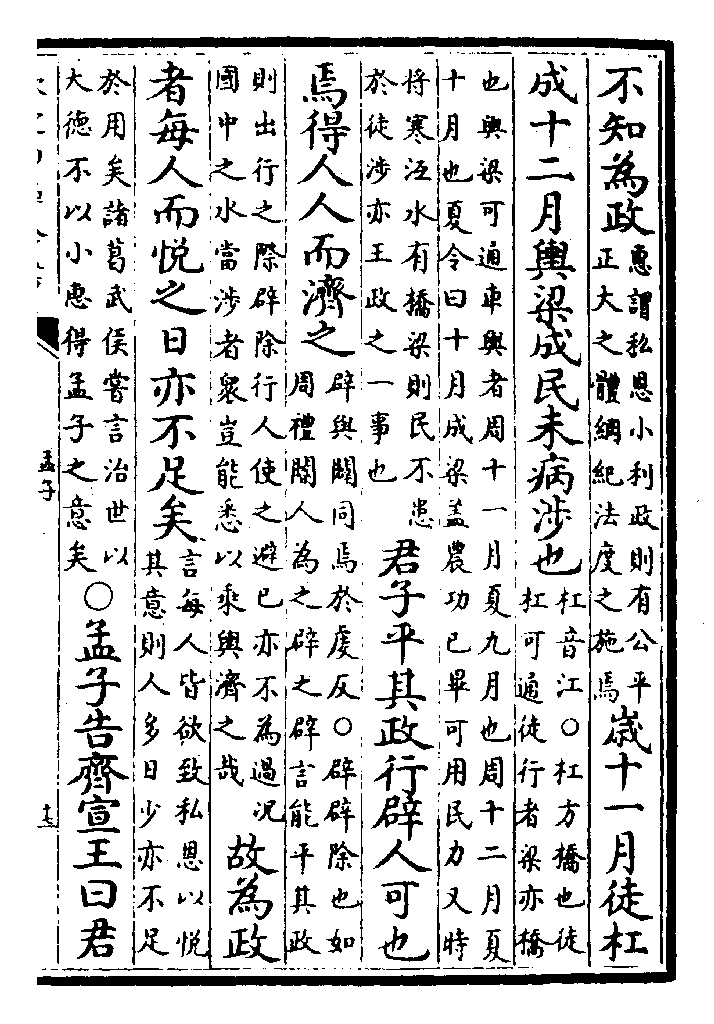 不知為政
惠謂私恩小利政則有公平
正大之體綱紀法度之施焉
歲十一月徒杠
成十二月輿梁成民未病涉也
杠音江○杠方橋也徒
杠可通徒行者梁亦橋
也輿梁可通車輿者周十一月夏九月也周十二月夏
十月也夏令曰十月成梁蓋農功已畢可用民力又時
將寒沍水有橋梁則民不患
於徒涉亦王政之一事也
君子平其政行辟人可也
焉得人人而濟之
辟與闢同焉於虔反○辟辟除也如
周禮閽人為之辟之辟言能平其政
則出行之際辟除行人使之避已亦不為過況
國中之水當涉者衆豈能悉以乘輿濟之哉
故為政
者每人而悅之日亦不足矣
言每人皆欲致私恩以悅
其意則人多日少亦不足
於用矣諸葛武侯嘗言治世以
大德不以小惠得孟子之意矣
○孟子告齊宣王曰君
孟子